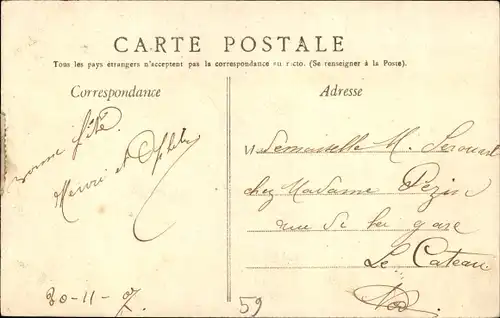 CARTE POSTALE
Tous les pays étrangers n'acceptent pas la correspondance au recto. (Se renseigner à la Poste).
Correspondance
Adresse
bonne fête
Merci et
30-11-07
Demoiselle M.
chez Madame Pezin
rue de la gare
Le Cateau
Nord
59